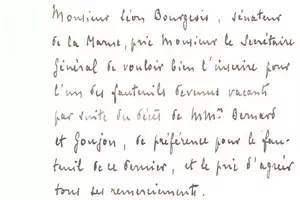 Monsieur Léon Bourgeois, sénateur
de la Marne, prie Monsieur le Secrétaire
Général de vouloir bien l'inscrire pour
l'un des fauteuils devenus vacants
par suite du décès de MM.rs Bernard
et Goujon, de préférence pour le fau-
teuil de ce dernier, et le prie d'agréer
tous ses remerciements.